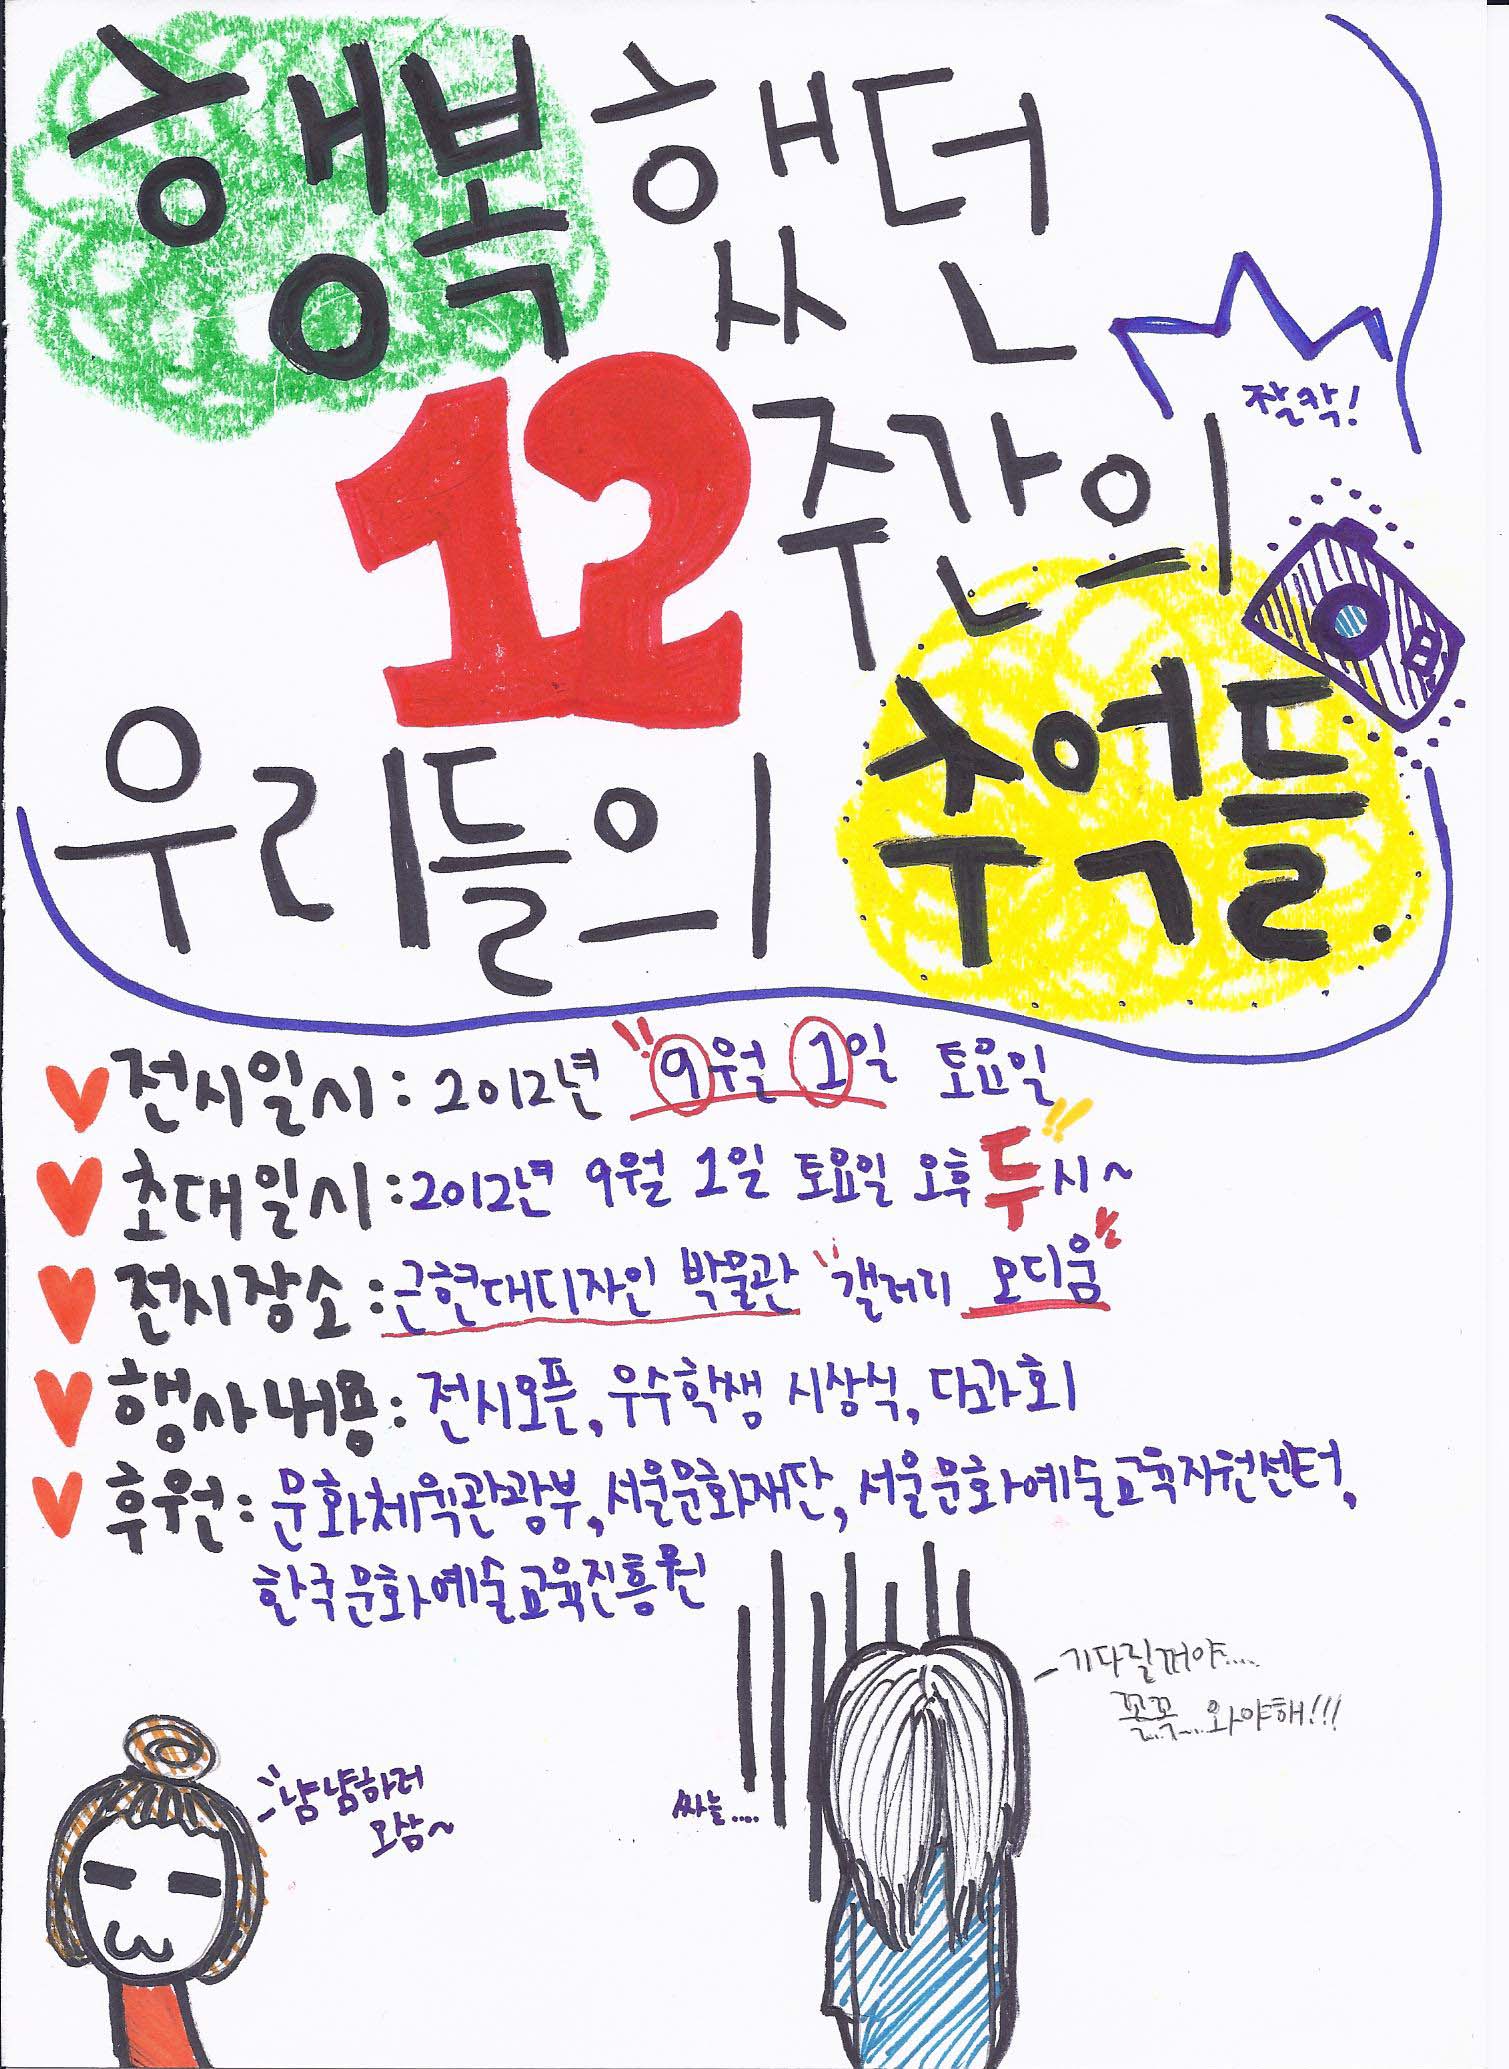 행복했던
찰칵!
12주간의
우리들의 추억들.
전시일시: 2012년 "9월 1일 토요일
초대일시: 2012년 9월 1일 토요일 오후 두시~!!
전시장소: 근현대디자인 박물관 "갤러리 모디움"
행사내용: 전시오픈, 우수학생 시상식, 다과회
후원: 문화체육관광부, 서울문화재단, 서울문화예술교육지원센터,
한국문화예술교육진흥원
기다릴꺼야....
꼬꼭......와야해!!!
냠냠하러
오삼~
싸늘....